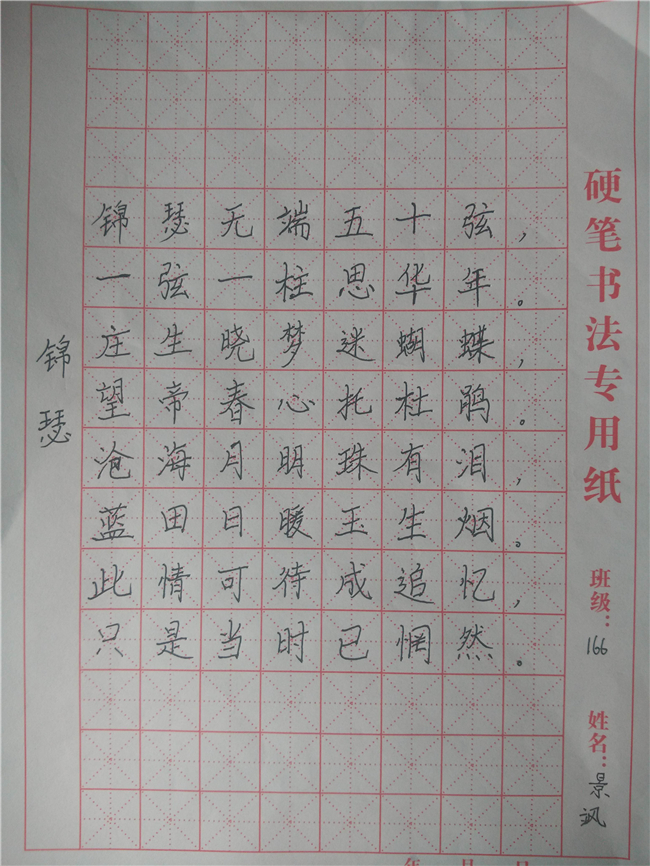 锦瑟
锦瑟无端五十弦，
一弦一柱思华年。
庄生晓梦迷蝴蝶，
望帝春心托杜鹃。
沧海月明珠有泪，
蓝田日暖玉生烟。
此情可待成追忆，
只是当时已惘然。
硬笔书法专用纸
班级：166
姓名：景飒
年 月 日